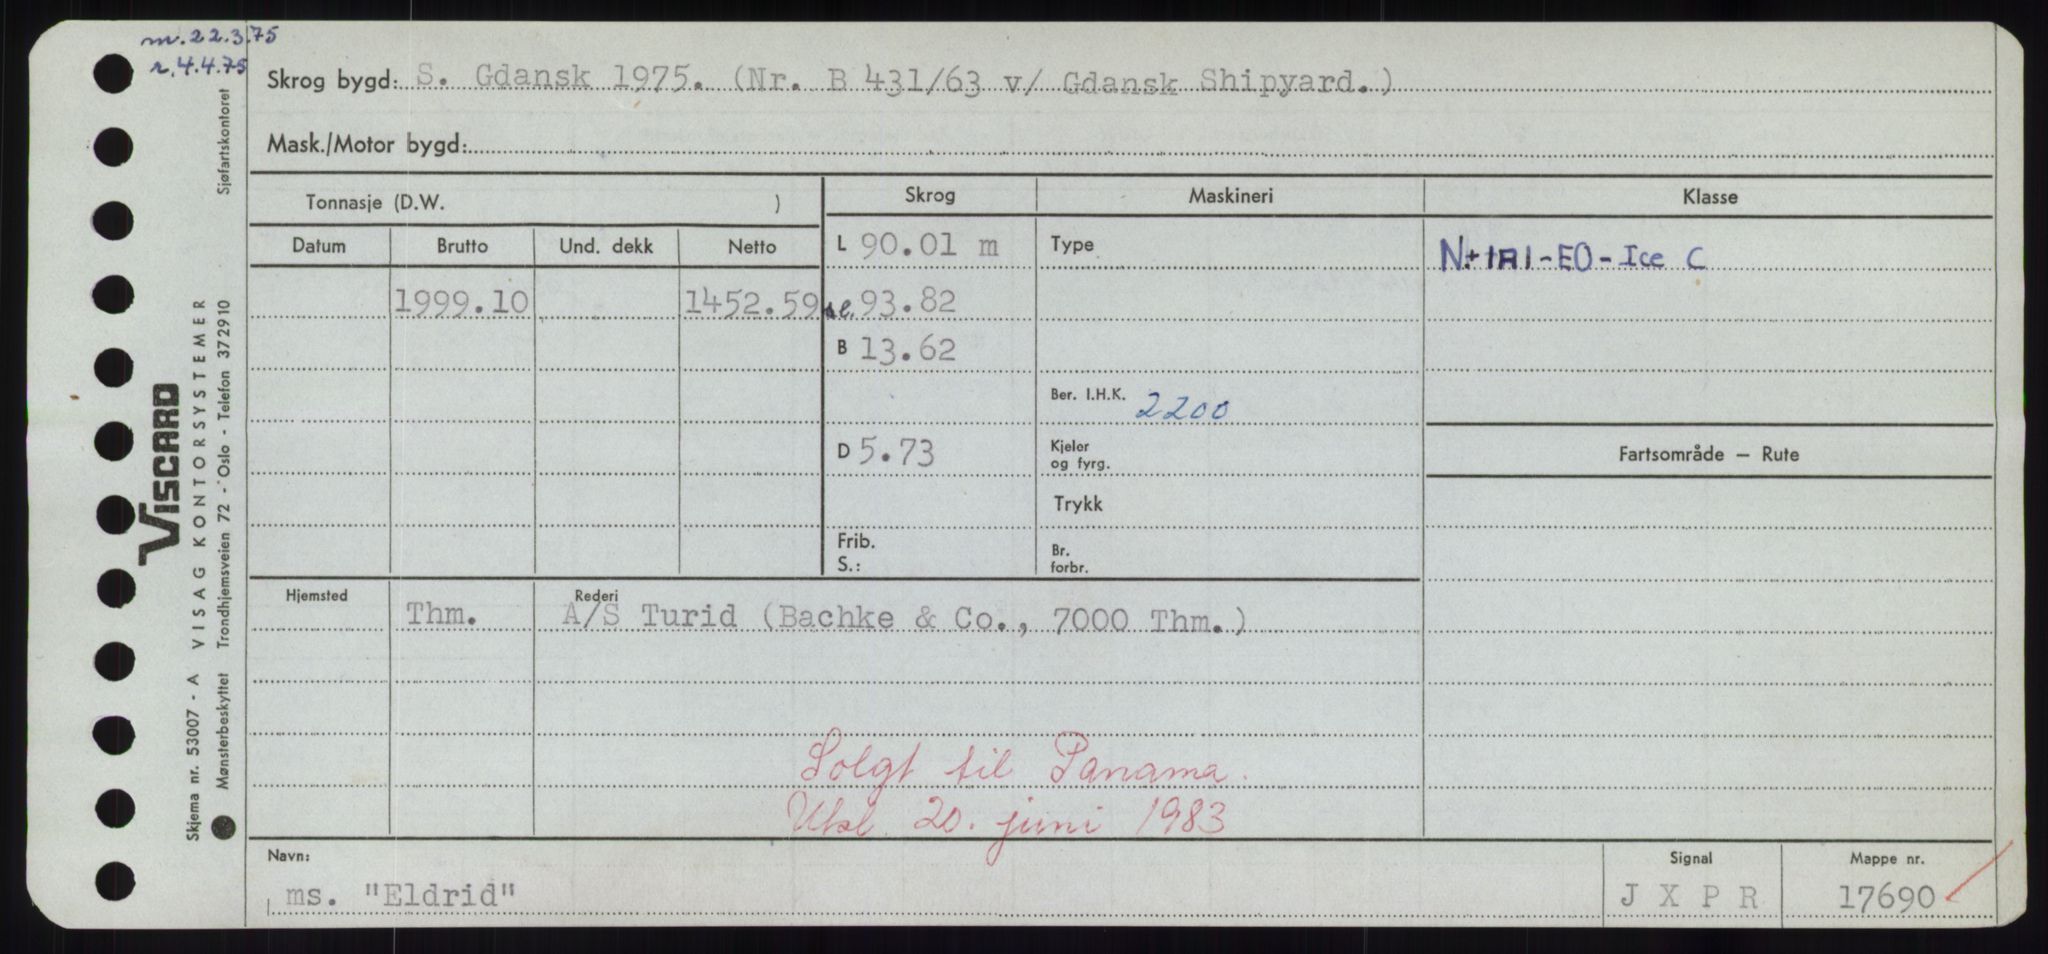 m. 22.3.75
r. 4.4.75
Skrog bygd: S. Gdansk 1975. (Nr. B 431/63 v/ Gdansk Shipyard.)
Mask./Motor bygd:
Tonnasje (D.W. )
Datum Brutto Und. dekk Netto
1999.10 1452.59
Skrog
L 90.01 m
al. 93.82
B 13.62
D 5.73
Frib.
S.:
Maskineri
Type
Ber. I.H.K. 2200
Kjeler
og fyrg.
Trykk
Br.
forbr.
Klasse
N.+1A1-EO-Ice C
Fartsområde – Rute
Hjemsted Rederi
Thm. A/S Turid (Bachke & Co., 7000 Thm.)
Solgt til Panama.
Utsl. 20. juni 1983
Navn: Signal Mappe nr.
ms. "Eldrid" J X P R 17690
Skjema nr. 53007 - A VISAG KONTORSYSTEMER
VISCARD
Mønsterbeskyttet Trondhjemsveien 72 - Oslo - Telefon 372910 Sjøfartskontoret